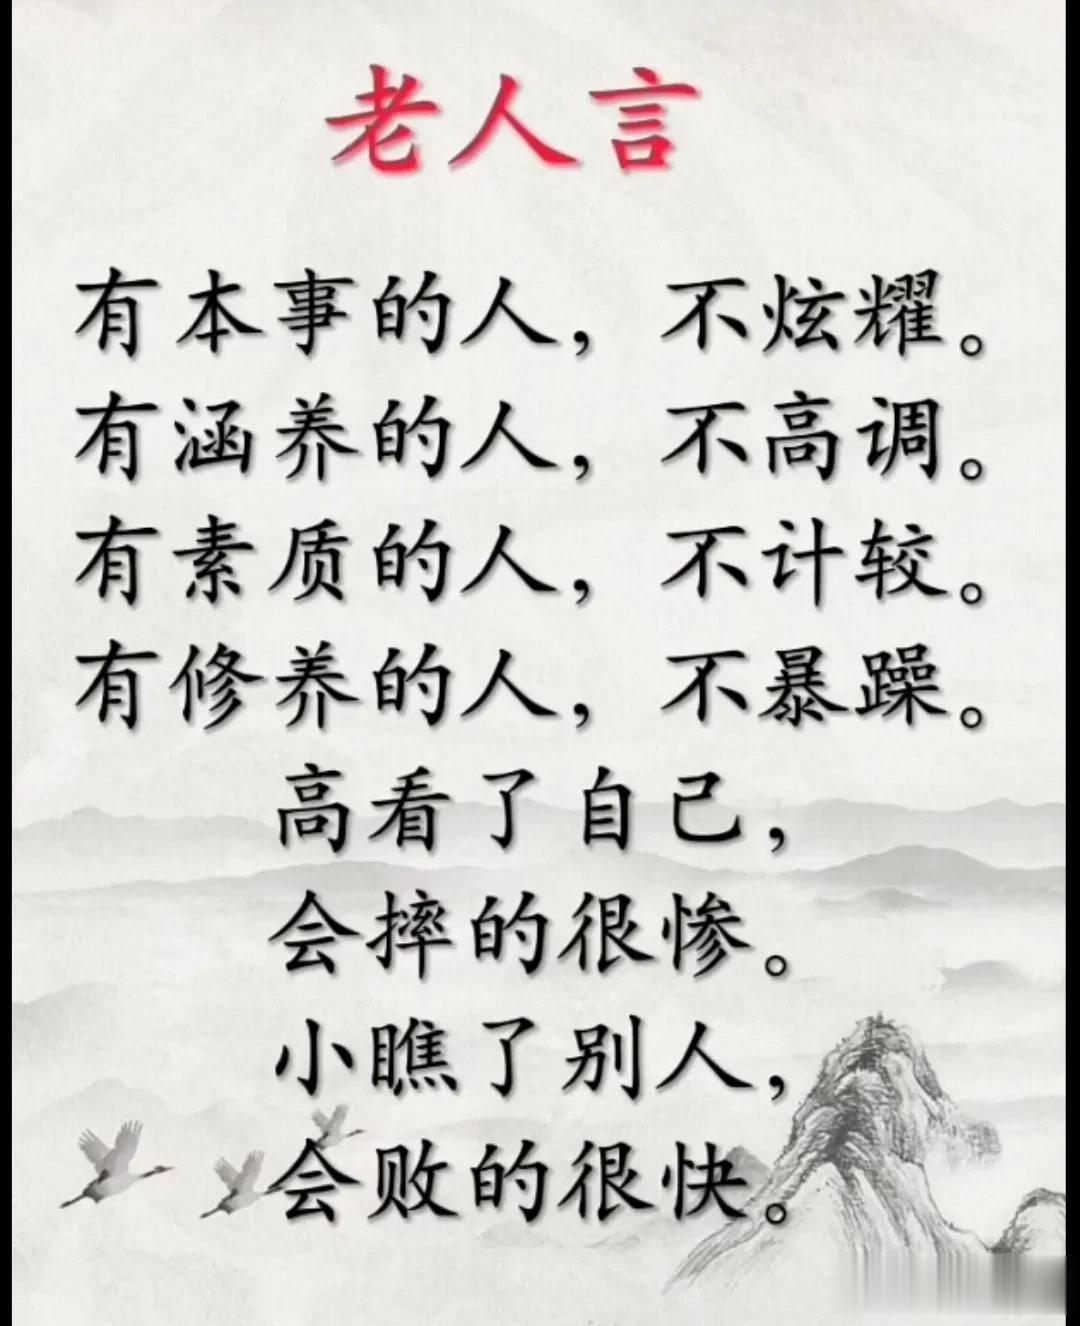 老人言
有本事的人，不炫耀。
有涵养的人，不高调。
有素质的人，不计较。
有修养的人，不暴躁。
高看了自己，
会摔的很惨。
小瞧了别人，
会败的很快。